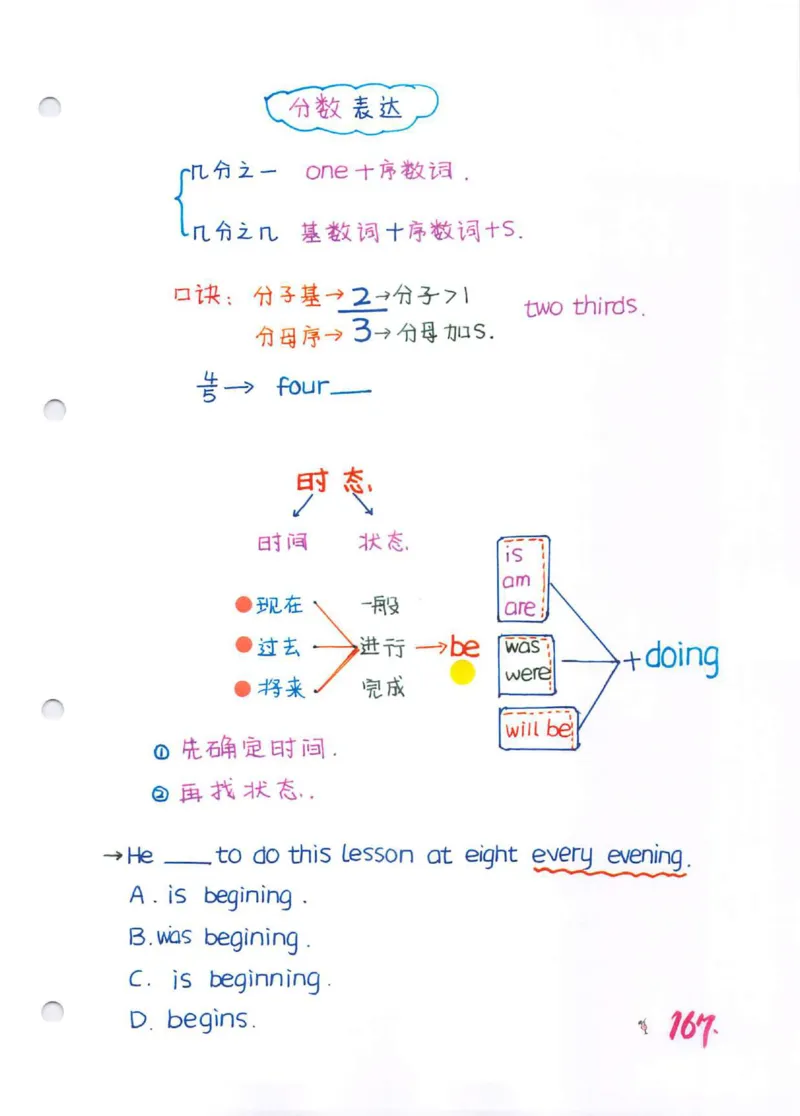 分数表达
几分之一 one+序数词.
几分之几 基数词+序数词+S.
口诀: 分子基→2→分子>1
分母序→3→分母加S.
two thirds.
4/5→ four___
时态.
时间 状态.
现在 一般
过去 进行→be
将来 完成
is
am
are
was
were
will be
+doing
① 先确定时间.
② 再找状态..
→He ___to do this lesson at eight every evening.
A. is begining.
B. was begining.
C. is beginning.
D. begins.
167.